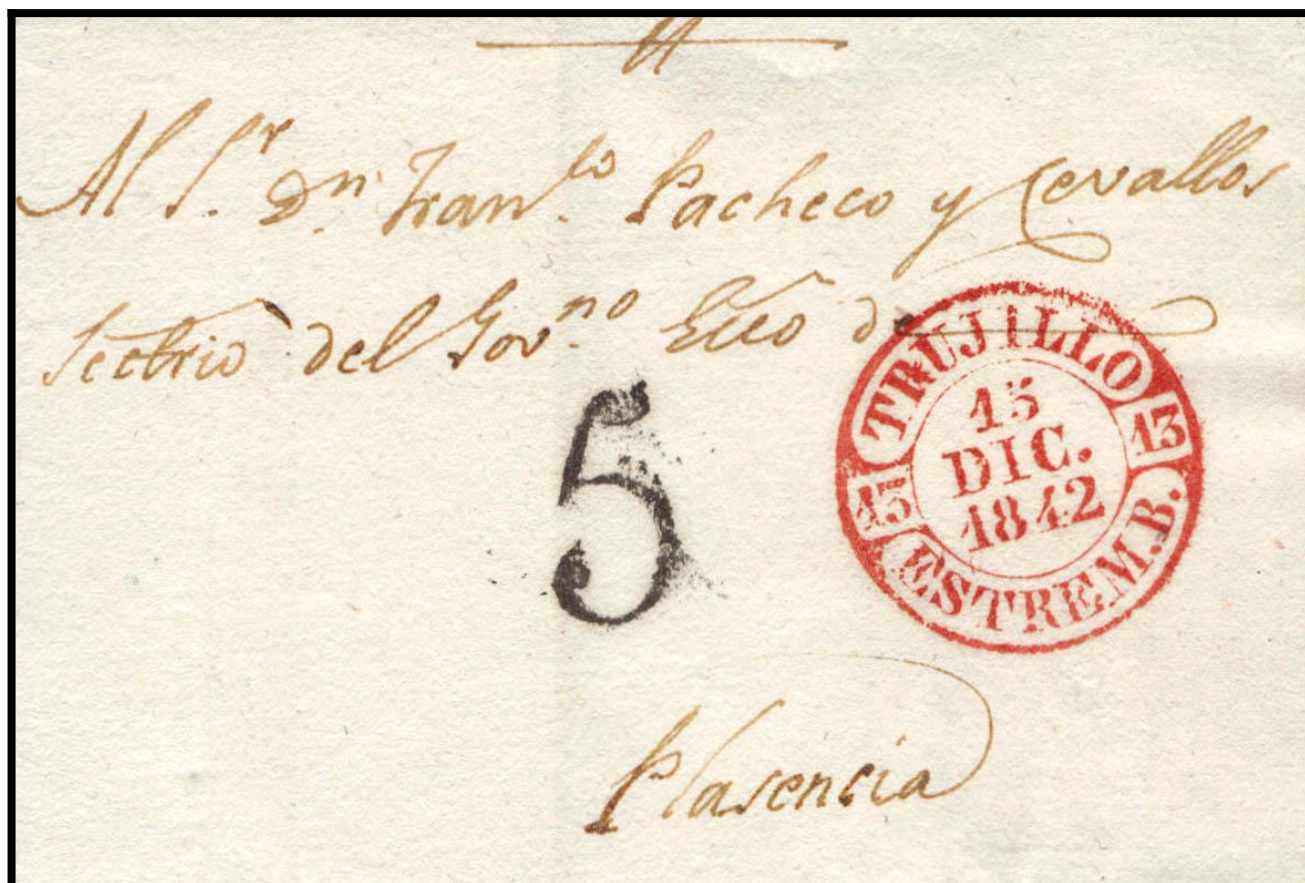 Al S.r Dn. Fran.co Pacheco y Cevallos
Secrio del Gov.no Ecco de
5
TRUJILLO
13 13
15
DIC.
1842
ESTREM.B.
Plasencia